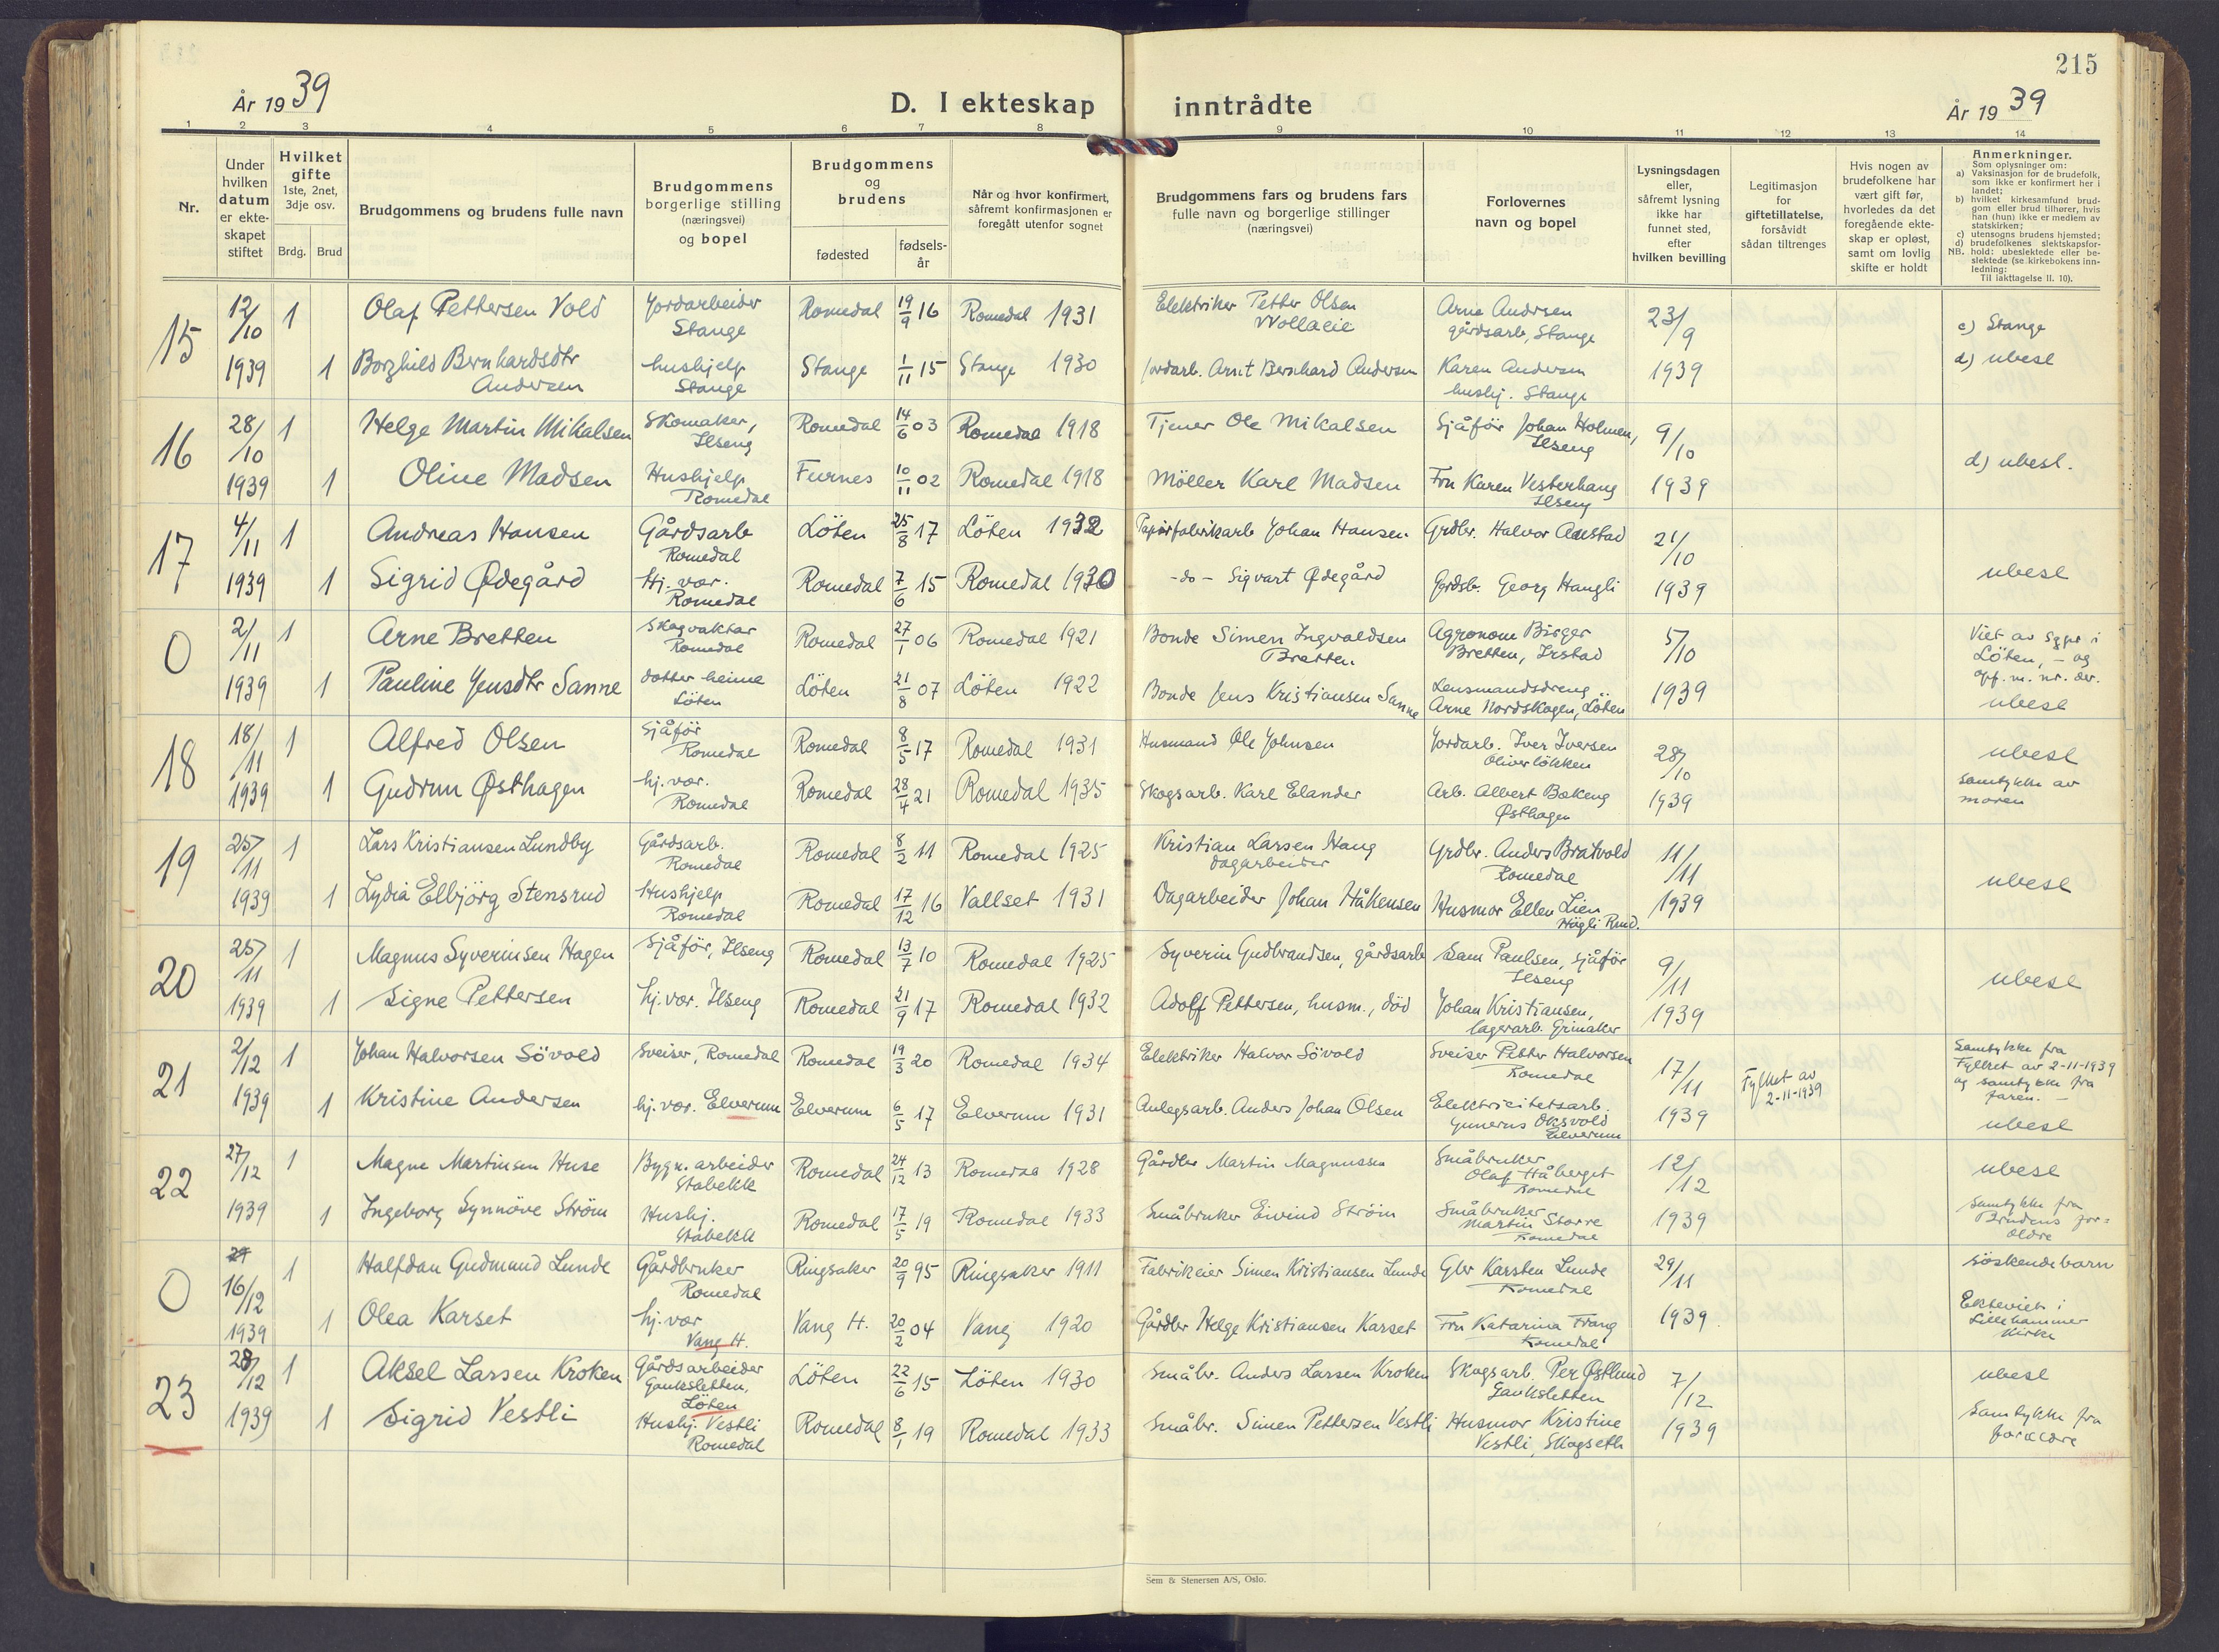 215
År 19 39
D. I ekteskap inntrådte
År 19 39
1 2 3 4 5 6 7 8 9 10 11 12 13 14
Nr.
Under hvilken datum er ekteskapet stiftet
Hvilket gifte 1ste, 2net, 3dje osv.
Brdg. Brud
Brudgommens og brudens fulle navn
Brudgommens borgerlige stilling (næringsvei) og bopel
Brudgommens og brudens
fødested fødselsår
Når og hvor konfirmert, såfremt konfirmasjonen er foregått utenfor sognet
Brudgommens fars og brudens fars fulle navn og borgerlige stillinger (næringsvei)
Forlovernes navn og bopel
Lysningsdagen eller, såfremt lysning ikke har funnet sted, efter hvilken bevilling
Legitimasjon for giftetillatelse, forsåvidt sådan tiltrenges
Hvis nogen av brudefolkene har vært gift før, hvorledes da det foregående ekteskap er opløst, samt om lovlig skifte er holdt
Anmerkninger.
Som oplysninger om:
a) Vaksinasjon for de brudefolk, som ikke er konfirmert her i landet;
b) hvilket kirkesamfund brudgom eller brud tilhører, hvis han (hun) ikke er medlem av statskirken;
c) utensogns brudens hjemsted;
d) brudefolkenes slektskapsforhold: ubeslektede eller beslektede (se kirkebokens innledning:
NB. Til iakttagelse II. 10).
15 12/10 1 Olaf Pettersen Vold Jordarbeider Stange Romedal 19/9 16 Romedal 1931 Elektriker Petter Olsen Arne Andersen gårdsarb, Stange 23/9 c) Stange
1939 1 Borghild Bernhardsdtr Andersen hushjelp Stange Stange 1/11 15 Stange 1930 Jordarb. Arnt Bernhard Andersen Karen Andersen hushj. Stange 1939 d) ubesl
16 28/10 1 Helge Martin Mikalsen Skomaker, Ilseng Romedal 14/6 03 Romedal 1918 Tjener Ole Mikalsen Sjåför Johan Holmen, Ilseng 9/10
1939 1 Oline Madsen Hushjelp Romedal Furnes 10/11 02 Romedal 1918 Möller Karl Madsen Fru Karen Vesterhaug Ilseng 1939 d) ubesl.
17 4/11 1 Andreas Hansen Gårdsarb Romedal Löten 25/8 17 Löten 1932 Papirfabrikarb Johan Hansen Grdbr. Halvor 21/10
1939 1 Sigrid Ødegård Hj. vær. Romedal Romedal 7/6 15 Romedal 1930 -do- Sigvart Ødegård Gårdsb. Georg Haugli 1939 ubesl
0 2/11 1 Arne Bretten Skogvaktar Romedal Romedal 27/1 06 Romedal 1921 Bonde Simen Ingvaldsen Bretten Agronom Birger Bretten, Ilstad 5/10 Viet av sgpr i Löten, - og opf. m. nr. der.
1939 1 Pauline Jensdtr Sanne dotter heime Löten Löten 21/8 07 Löten 1922 Bonde Jens Kristiansen Sanne Lensmandsdreng Arne Nordskogen, Löten 1939 ubesl
18 18/11 1 Alfred Olsen Sjåför Romedal Romedal 8/5 17 Romedal 1931 Husmand Ole Johnsen Jordarb. Iver Iversen Oliverlökken 28/10 ubesl
1939 1 Gudrun Østhagen hj. vær. Romedal Romedal 28/4 21 Romedal 1935 Skogsarb. Karl Elander Arb. Albert Bakeng Østhagen 1939 Samtykke av moren
19 25/11 1 Lars Kristiansen Lundby Gårdsarb. Romedal Romedal 8/2 11 Romedal 1925 Kristian Larsen Haug dagarbeider Grdbr. Anders Bratvold Romedal 11/11
1939 1 Lydia Elbjörg Stensrud Hushjelp Romedal Romedal 17/12 16 Vallset 1931 Dagarbeider Johan Håkensen Husmor Ellen Lien Högli Rud. 1939 ubesl
20 25/11 1 Magnus Syverinsen Hagen Sjåför, Ilseng Romedal 13/7 10 Romedal 1925 Syverin Gudbrandsen, gårdsarb Sam Paulsen, sjåför Ilseng 9/11 ubesl
1939 1 Signe Pettersen hj. vær. Ilseng Romedal 21/9 17 Romedal 1932 Adolf Pettersen, husm., död Johan Kristiansen, lagerarb. Grimaker 1939
21 2/12 1 Johan Halvorsen Sövold Sveiser, Romedal Romedal 19/3 20 Romedal 1934 Elektriker Halvor Sövold Sveiser Petter Halvorsen Romedal 17/11 Fylket av 2-11-1939 Samtykke fra Fylket av 2-11-1939 og samtykke fra faren. -
1939 1 Kristine Andersen hj. vær. Elverum Elverum 6/5 17 Elverum 1931 Anlegsarb. Anders Johan Olsen Elektricitetsarb. Gunerus Oksvold Elverum 1939 ubesl
22 27/12 1 Magne Martinsen Huse Bygn. arbeider Stabekk Romedal 24/12 13 Romedal 1928 Gårdbr Martin Magnussen Småbruker Olaf Håberget Romedal 12/12 ubesl
1939 1 Ingeborg Synnöve Ström Hushj. Stabekk Romedal 17/5 19 Romedal 1933 Småbruker Eivind Ström Småbruker Martin Storre Romedal 1939 Samtykke fra Brudens foreldre
0 16/12 1 Halfdan Gudmund Lunde Gårdbruker Romedal Ringsaker 20/9 95 Ringsaker 1911 Fabrikeier Simen Kristiansen Lunde Gbr Karsten Lunde Romedal 29/11 söskendebarn
1939 1 Olea Karset hj. vær Vang H. Vang H. 20/2 04 Vang 1920 Gårdbr Helge Kristiansen Karset Fru Katarina Frang Romedal 1939. Ekteviet i Lillehammer kirke
23 28/12 1 Aksel Larsen Kroken Gårdsarbeider Gauksletten, Löten Löten 22/6 15 Löten 1930 Småbr. Anders Larsen Kroken Skogsarb. Per Østlund Gauksletten 7/12 ubesl
1939 1 Sigrid Vestli Hushj. Vestli Romedal Romedal 8/1 19 Romedal 1933 Småbr. Simen Pettersen Vestli Husmor Kristine Vestli, Skogseth 1939 Samtykke fra foreldre
Sem & Stenersen A/S, Oslo.